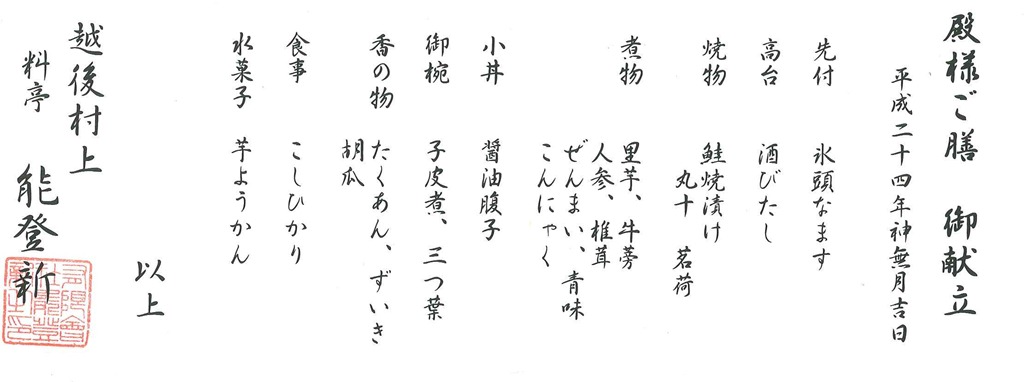 殿様ご膳 御献立
平成二十四年神無月吉日
先付 氷頭なます
高台 酒びたし
焼物 鮭焼漬け
丸十 茗荷
煮物 里芋、牛蒡
人参、椎茸
ぜんまい、青味
こんにゃく
小丼 醤油腹子
御椀 子皮煮、三つ葉
香の物 たくあん、ずいき
胡瓜
食事 こしひかり
水菓子 芋ようかん
以上
越後村上
料亭 能登新